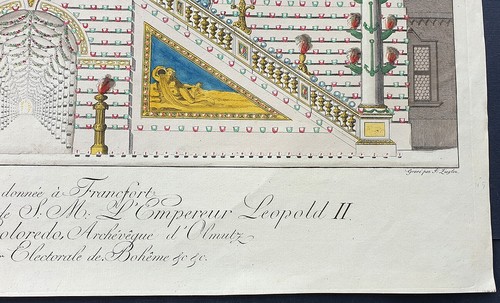 Gravé par J. Ziegler.
donnée à Francfort
de S. M. L'Empereur Leopold II.
Coloredo, Archévêque d'Olmutz
Electorale de Bohême &c &c.